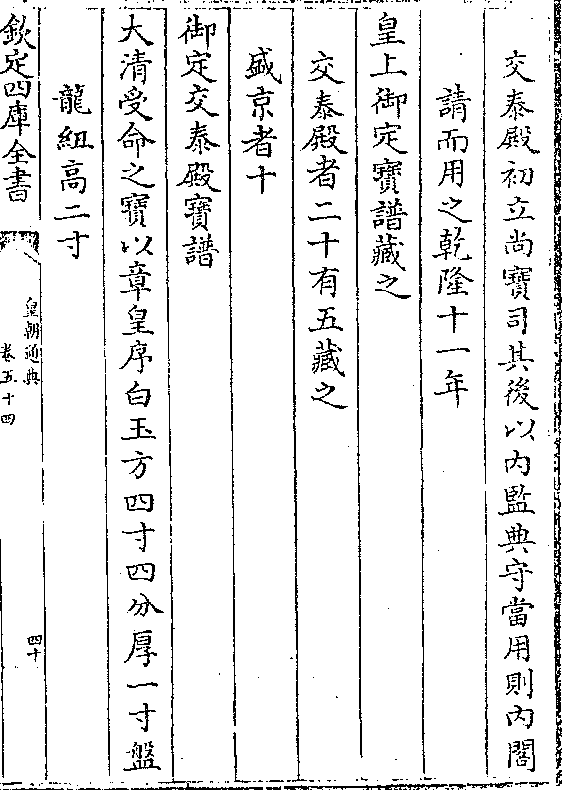 交泰殿初立尚寶司其後以内監典守當用則内閣
請而用之乾隆十一年
皇上御定寶譜藏之
交泰殿者二十有五藏之
盛京者十
御定交泰殿寶譜
大清受命之寶以章皇序白玉方四寸四分厚一寸盤
龍紐高二寸
欽定四庫全書
皇朝通典
卷五十四
四十